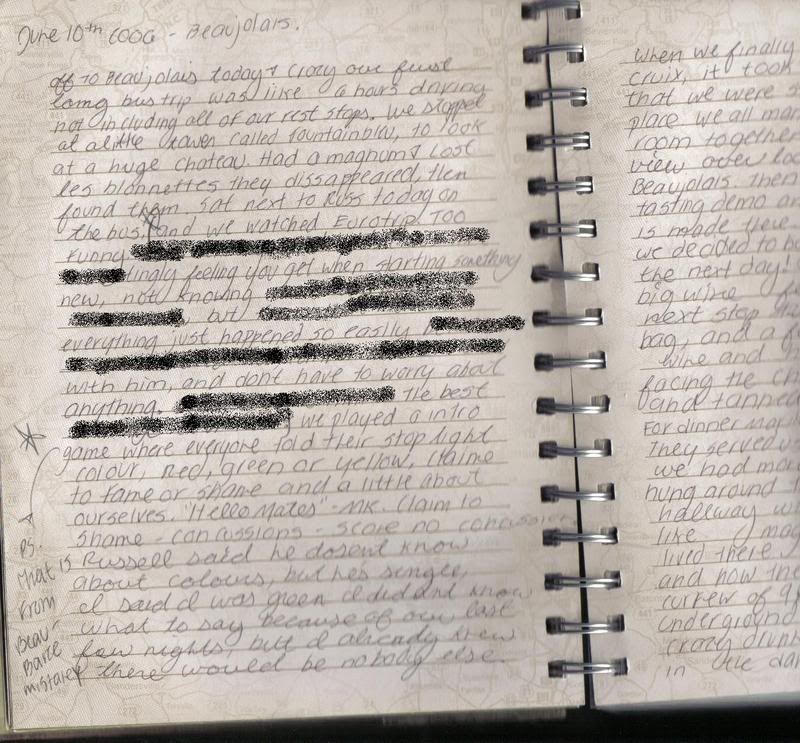 June 10th 2006 - Beaujolais.
off to Beaujolais today & crazy our first
long bus trip was like 6 hours driving
not including all of our rest stops. We stopped
at a little town called fountainbleu, to look
at a huge chateau. Had a magnum & Lost
les blonnettes they dissappeared, then
found them, sat next to Russ today on
the bus and we watched Eurotrip, Too
funny
tingly feeling you get when starting something
new, not knowing
, but
everything just happened so easily
with him, and dont have to worry about
anything. The best
we played a intro
game where everyone told their stop light
colour, red, green or yellow, claime
to fame or shame and a little about
ourselves. "Hello Mates" - MK. Claim to
shame - concussions - score no concussions
Russell said he dosent know
about colours, but he's single,
I said I was green I didnt know
what to say because of our last
few nights, but I already knew
there would be nobody else.
PS.
that is
from
Beau
Barce
mistake
when we finally
cruix, it took
that we were s
place we all mar
room together
view over loo
Beaujolais. Then
tasting demo an
is made there
we decided to b
the next day!
big wine
next stop
bag, and a f
wine and
facing the ch
and tanned
For dinner mar
They served u
we had mor
hung around
hallway w
like mag
lived there
and how the
curfew of 9
underground
crazy drunk
in the dar